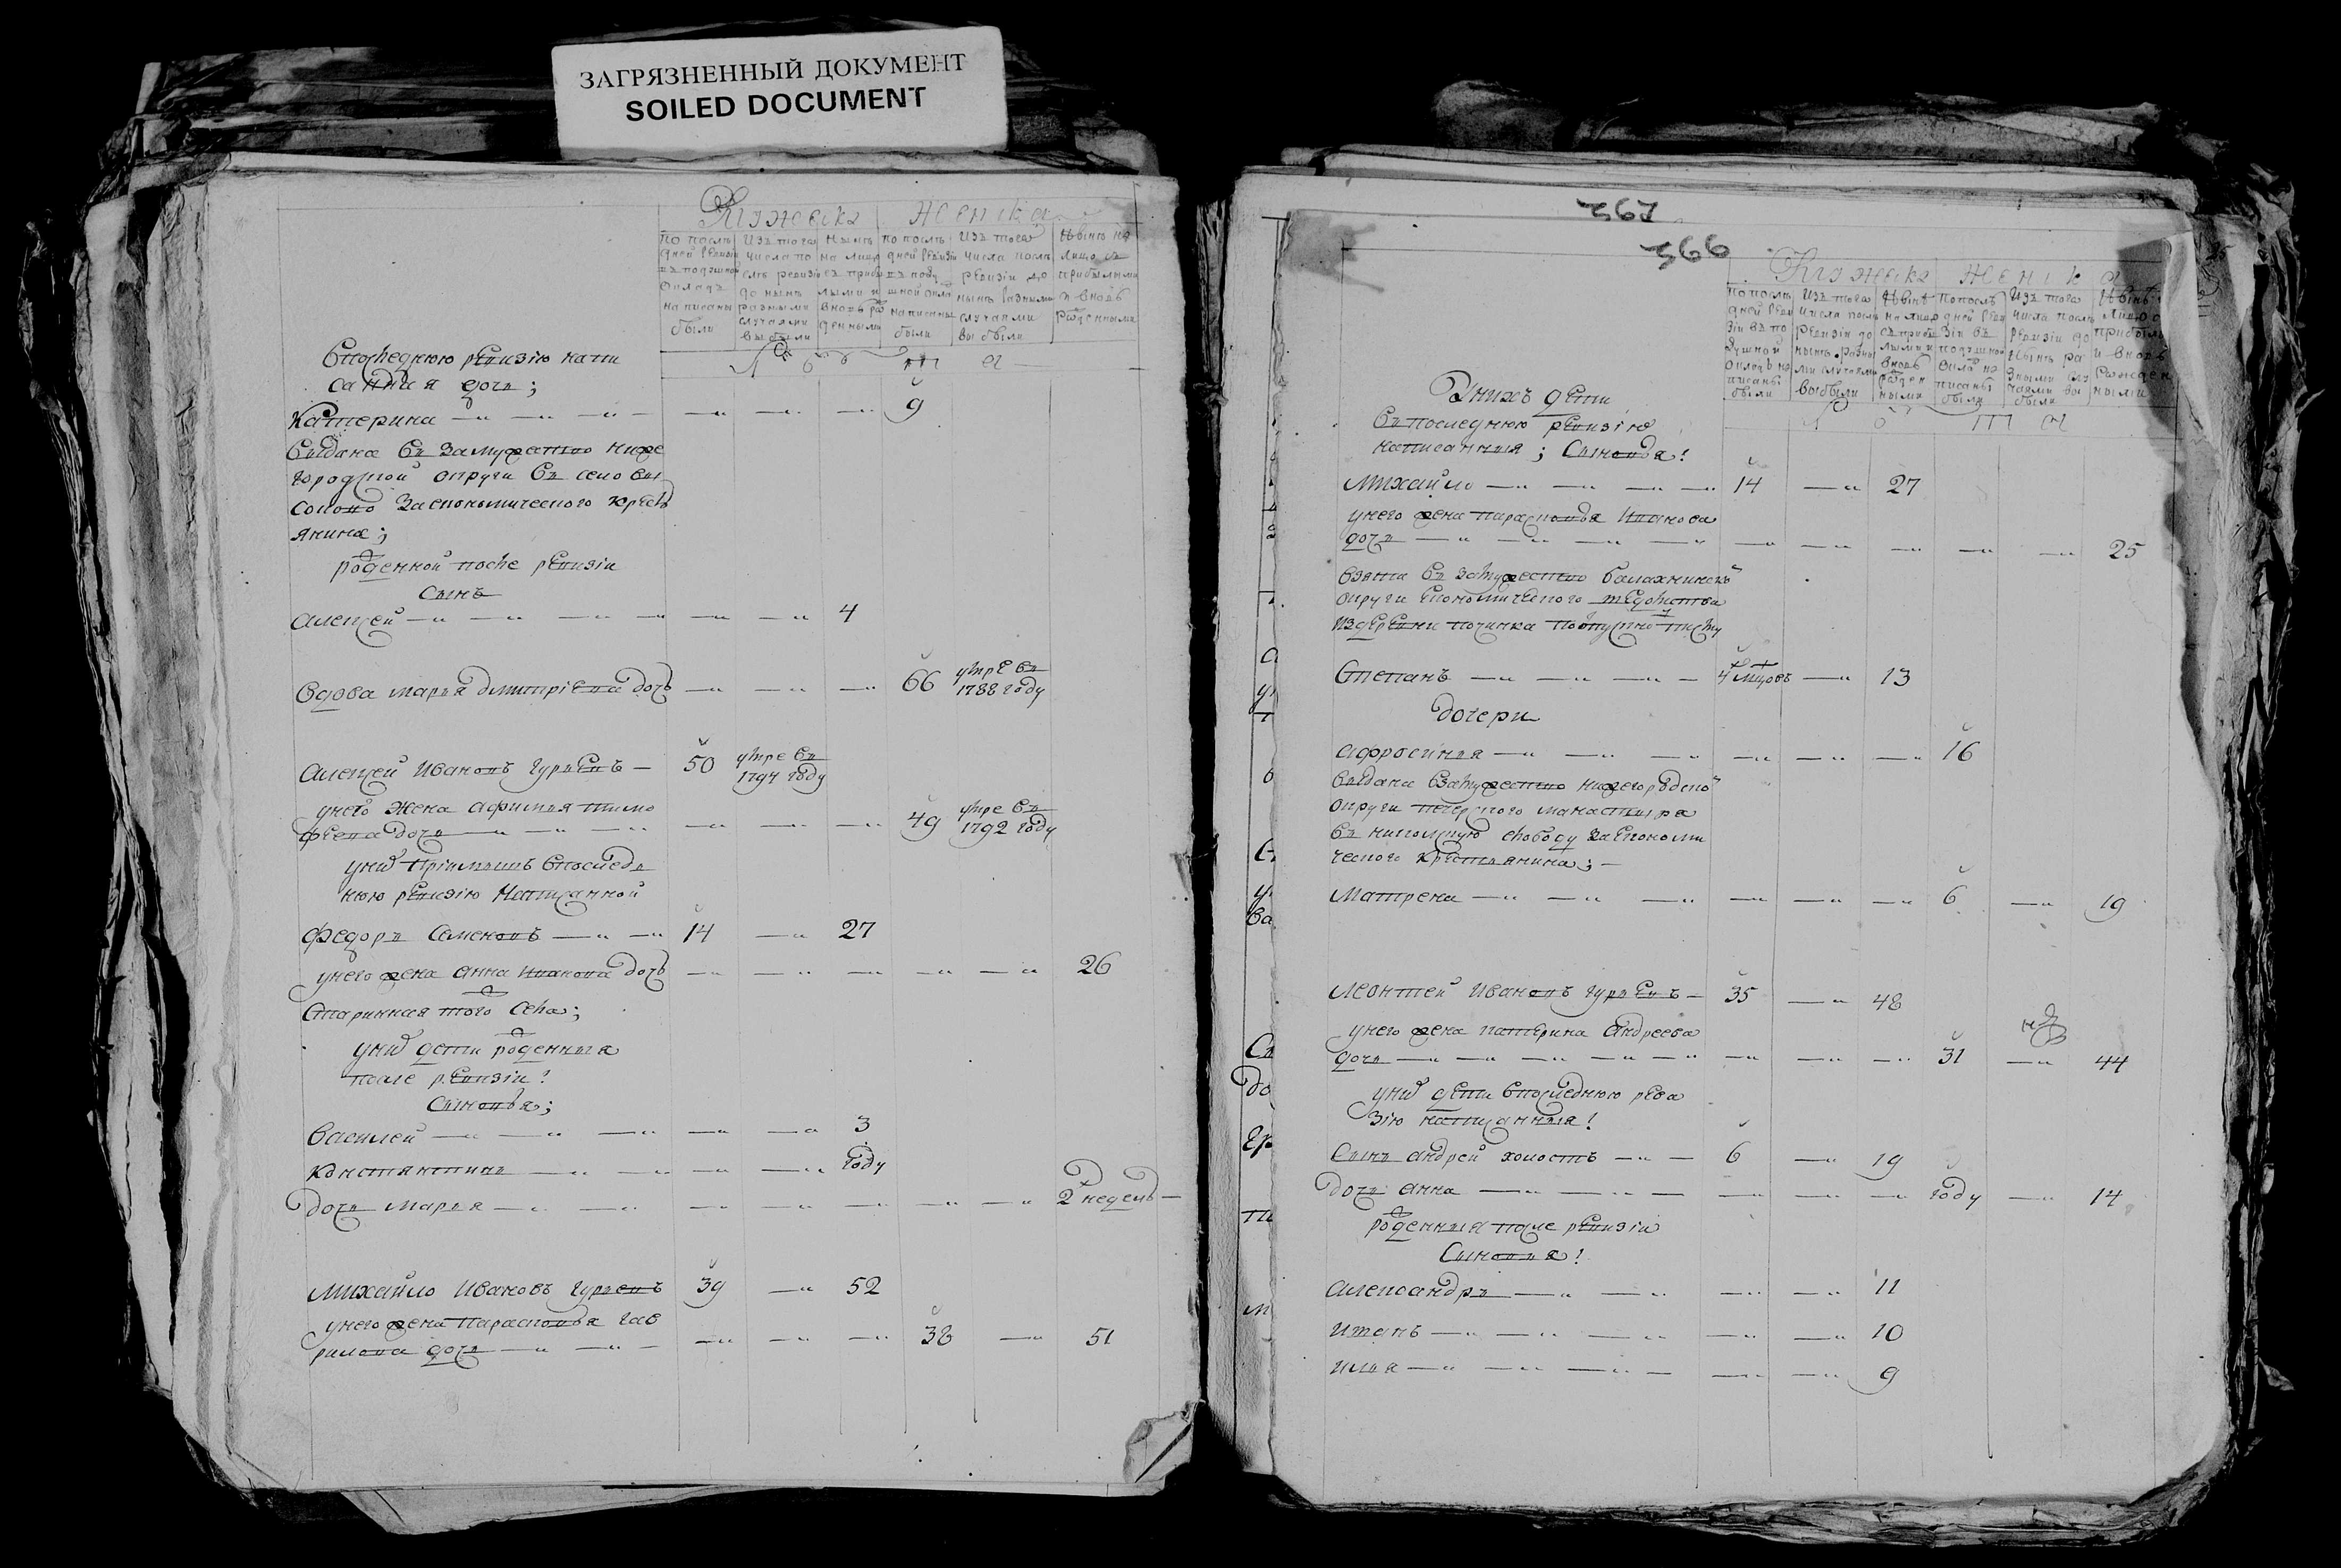 ЗАГРЯЗНЕННЫЙ ДОКУМЕНТ
SOILED DOCUMENT
Мужеска Женска
по послѣдней ревизiи въ подушной окладъ написаны были
Изъ того числа послѣ ревизiи до нынѣ разными случаями выбыли
Нынѣ на лицо съ прибылыми и вновь рожденными
по послѣдней ревизiи въ подушной окладъ написаны были
Изъ того числа послѣ ревизiи до нынѣ разными случаями выбыли
Нынѣ на лицо съ прибылыми и вновь рожденными
Л ѣ т а
впоследнюю ревизiю напи
санная дочь;
Катерина 9
выдана въ замужество ниже
городской округи въ село выс
соково за економического крестъ
янина;
роденной после ревизiи
сынъ
алексей 4
вдова марья дмитрiева дочь 66 умре въ 1788 году
алексей Ивановъ гурьевъ 50 умре въ 1794 году
унего жена афимья тимо
феева дочь 49 умре въ 1792 году
унихъ прiимышъ впослед
нюю ревизiю написанной
федоръ семеновъ 14 27
унего жена анна иванова дочь 26
старинная того села;
унихъ дети роденныя
после ревизiи!
сыновья;
василей 3
константинъ году
дочь марья 2 недель
михайло Ивановъ гурьевъ 39 52
унего жена парасковья гав
рилова дочь 38 51
367
366
Мужеска Женска
по послѣдней ревизiи въ подушной окладъ написаны были
Изъ того числа послѣ ревизiи до нынѣ разными случаями выбыли
Нынѣ на лицо съ прибылыми и вновь рожденными
по послѣдней ревизiи въ подушной окладъ написаны были
Изъ того числа послѣ ревизiи до нынѣ разными случаями выбыли
Нынѣ на лицо с прибылы и вновь рожденными
Л ѣ т а
Унихъ дети
въ последнюю ревизiю
написанныя; сыновья!
михайло 14 27
унего жена парасковья Иванова
дочь 25
взята въ замужество балахнинской
округи економического ведомства
издеревни починка поотпускному писму
степанъ 4 мцовъ 13
дочери
афросинья 16
выдана взамужество нижегородской
округи печерского манастыря
въ слободу за економи
ческого крестьянина;
матрена 6 19
леонтей Ивановъ гурьевъ 35 48
унего жена катерина андреева
дочь 31 44
унихъ дети впоследнюю реви
зiю написанныя!
сынъ андрей холостъ 6 19
дочь анна году 14
роденныя после ревизiи
сыновья!
александръ 11
иванъ 10
илья 9